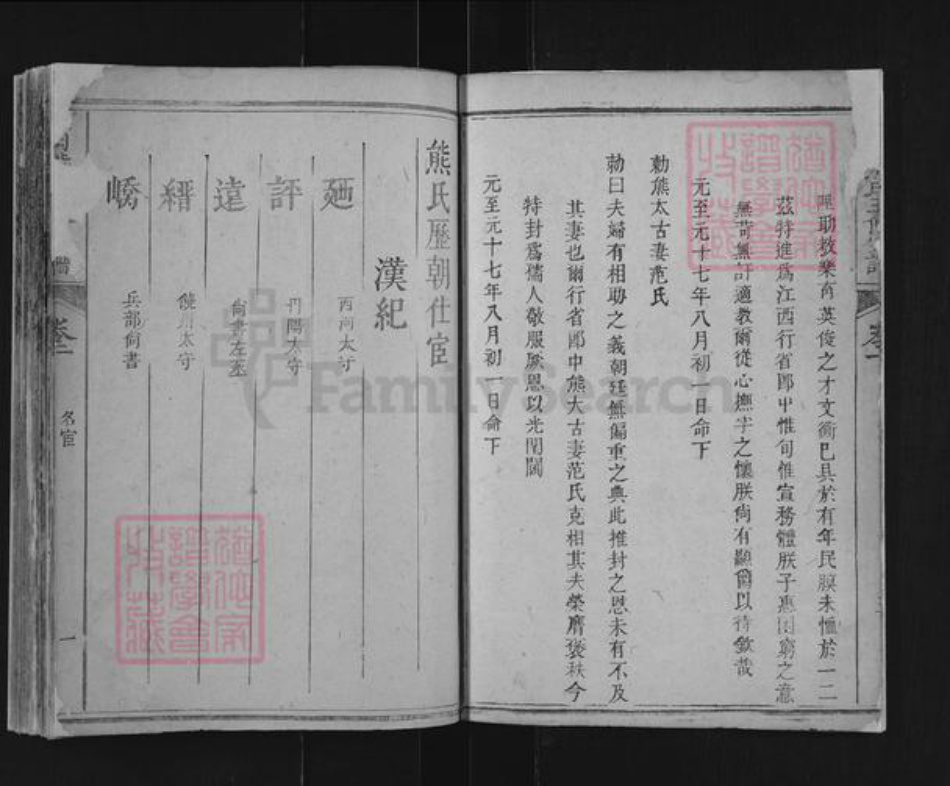 助教樂育英俊之才文衡已具於有年民膜未恤於一二
茲特進爲江西行省郎中惟旬惟宣務體朕子惠困窮之意
無詩無訏適教爾從心撫字之懷朕尚有顯爵以待欽哉
元至元十七年八月初一日命下
勅熊太古妻范氏
勅曰夫婦有相助之義朝廷無偏重之典此推封之恩未有不及
其妻也爾行省郎中熊大古妻范氏克相其夫榮膺褒秩今
特封爲儒人敬服厥恩以光閨闥
元至元十七年八月初一日命下
熊氏歷朝仕宦
漢紀
廼 西河太守
評 丹陽太守
遠 尚書左丞
縉 饒州太守
嶠 兵部尚書
卷一
名宦
一
FamilySearch